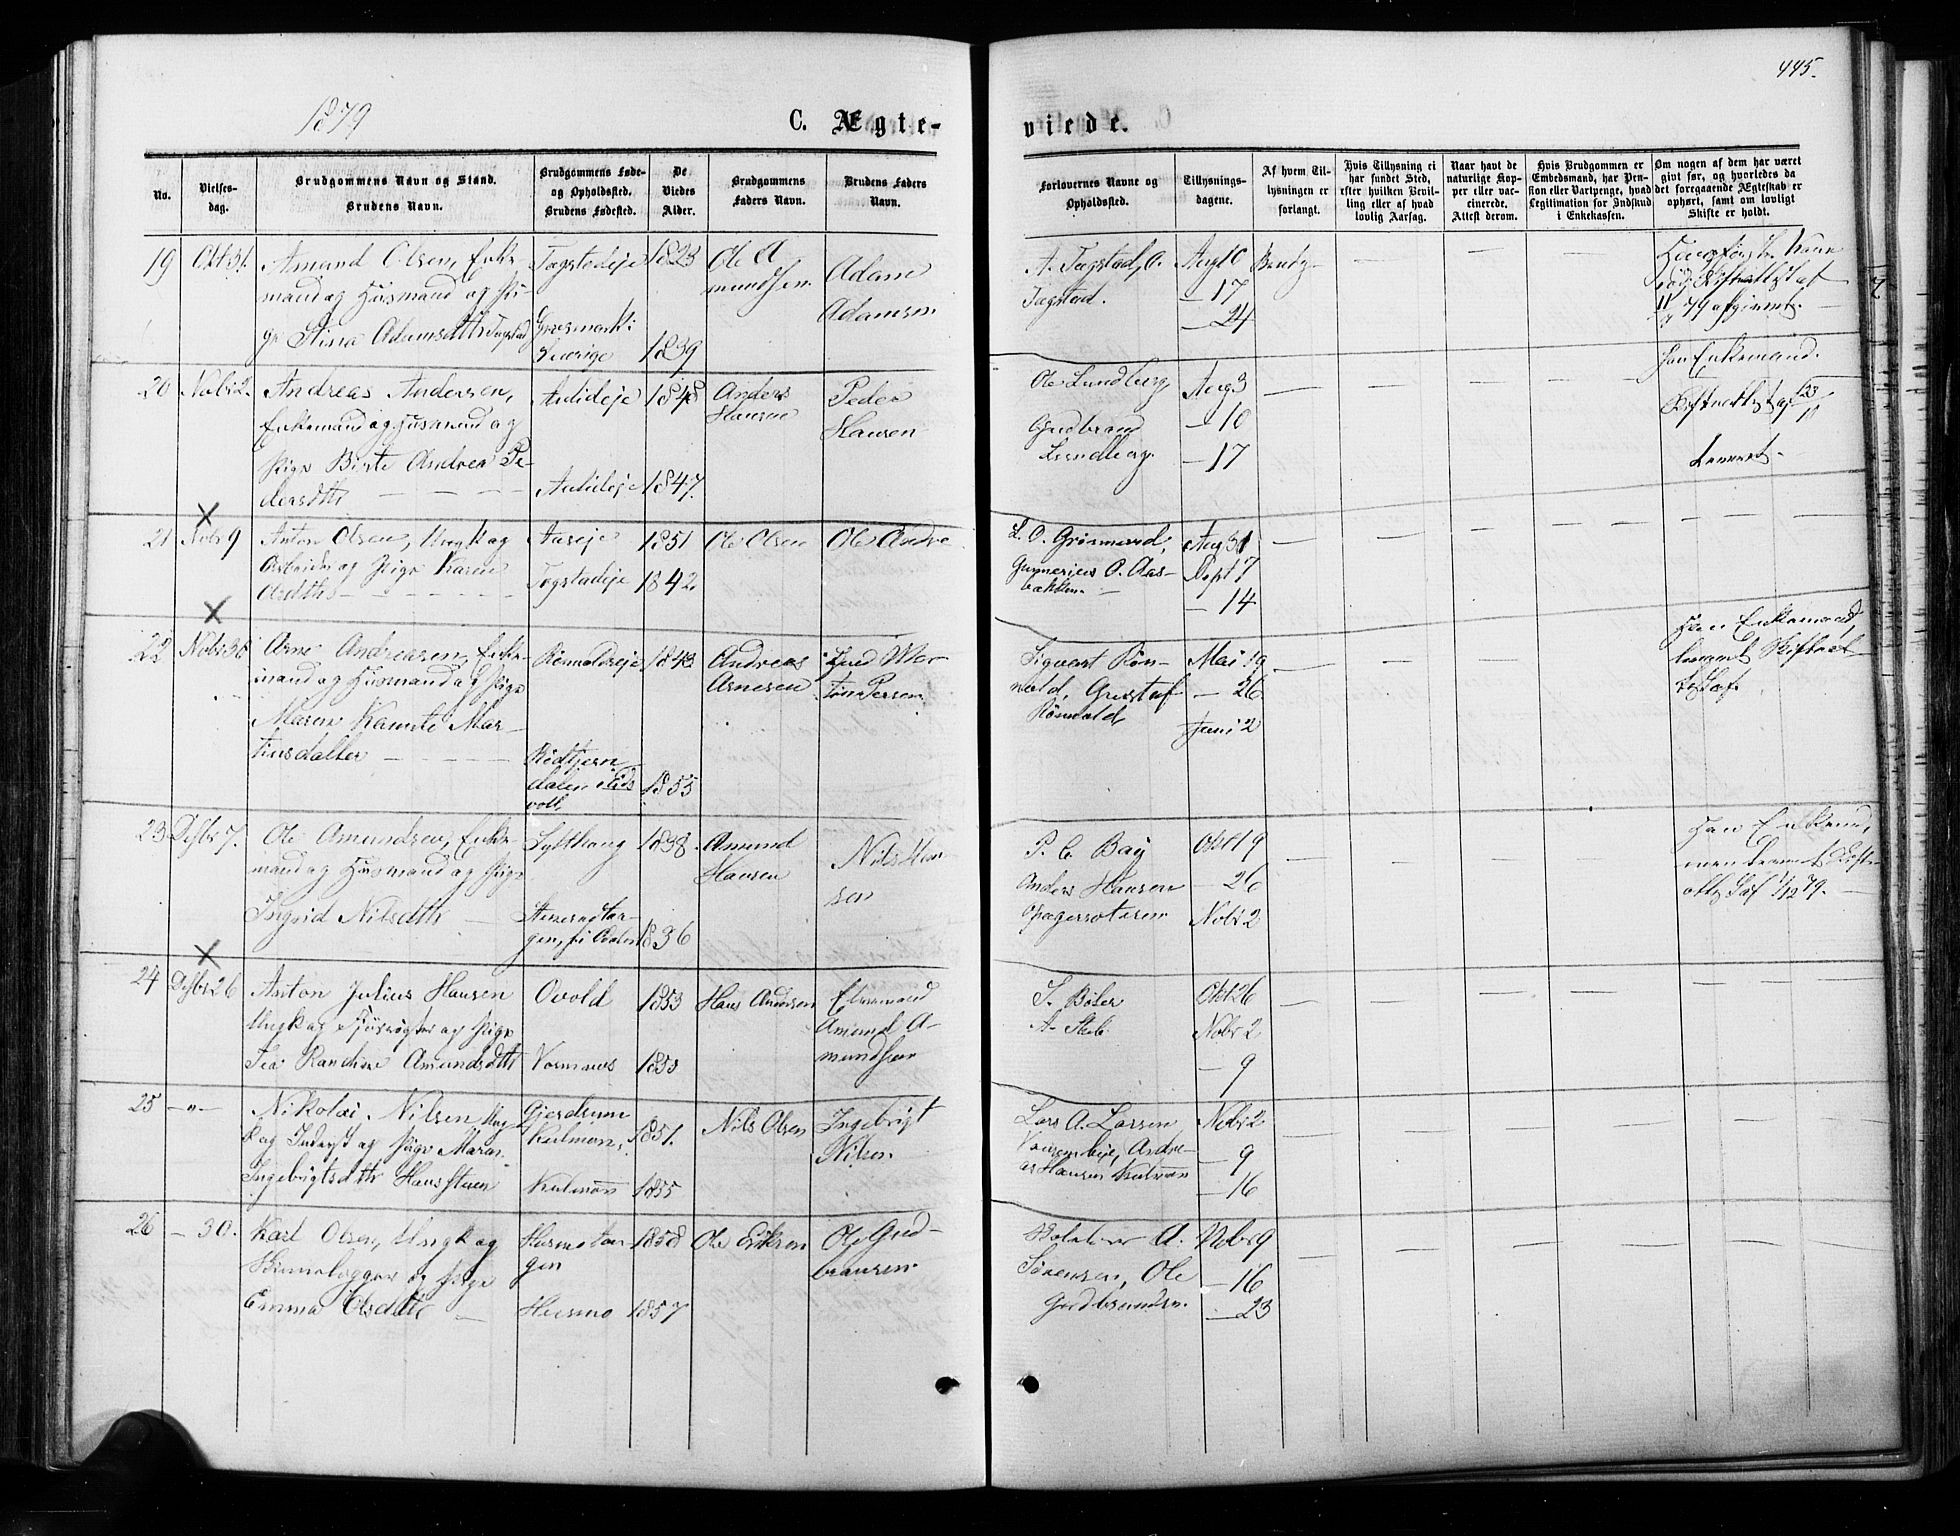 445.
1879
C. Ægte-
viede.
No.
Vielses-
dag.
Brudgommens Navn og Stand.
Brudens Navn.
Brudgommens Føde-
og Opholdssted.
Brudens Fødested.
De
Viedes
Alder.
Brudgommens
Faders Navn.
Brudens Faders
Navn.
Forlovernes Navne og
Opholdssted.
Tillysnings-
dagene.
Af hvem Til-
lysningen er
forlangt.
Hvis Tillysning ei
har fundet Sted,
efter hvilken Bevil-
ling eller af hvad
lovlig Aarsag.
Naar havt de
naturlige Kop-
per eller vac-
cinerede.
Attest derom.
Hvis Brudgommen er
Embedsmand, har Pen-
sion eller Vartpenge, hvad
Legitimation for Indskud
i Enkekassen.
Om nogen af dem har været
gift før, og hvorledes da
det foregaaende Ægteskab er
ophørt, samt om lovligt
Skifte er holdt.
19
Okt 31.
Amund Olsen, Enke-
mand og Husmand og Pi-
ge Stina Adamsdtr Togstad
Togstadeje
Græsmark i
Sverige
1823
1839
Ole A
mundsen
Adam
Adamsen
A. Togstad, O.
Togstad.
Aug 10
— 17
— 24
20
Novbr 2.
Andreas Andersen,
Enkemand og Husmand og
Pige Birte Andrea Pe-
dersdtr
Aulideje
Aulideje
1848
1847.
Anders
Hansen
Peder
Hansen
Ole Lundberg,
Gudbrand
Lundberg.
Aug 3
— 10
— 17
Han Enkemand.
21
Novbr 9
Anton Olsen, Ungk og
Arbeider og Pige Karen
Olsdtr
Aaseje
Togstadeje
1851
1842.
Ole Olsen
Ole Andre
L. O. Grönnerud,
Gunnerius O. Aas-
bækken.
Aug 31
Sept 7
— 14
22
Novbr 30
Arne Andreasen, Enke-
mand og Husmand og Pige
Maren Kamile Mar-
tinsdatter
Rönnoldseje
Rödtjern
dalen i Eids
voll.
1843
1855
Andreas
Arnesen
Sigvart Rön-
nold, Gustaf
Rönnold
Mai 19
— 26
Juni 2
Han Enkemand,
23
Desbr 7.
Ole Amundsen, Enke-
mand og Husmand og Pige
Ingrid Nilsdtr
1838
1836
Amund
Hansen
Nils Han-
sen
P. C. Bay
Anders Hansen
Okt 19
— 26
Novbr 2
Han Enkemd,
24
Desbr 26
Anton Julius Hansen
Ungk og og Pige
Tea Randine Amundsdtr
Ovold
1853
1855
Hans Andersen
Amund A-
mundsen
S. Böler
Okt 26
Novbr 2
— 9
25
— " —
Nikolai Nilsen, Ung
k og Inderst og Pige Maren
Ingebrigtsdtr
Gjerdrum
Kulmoen,
Kulmoen
1851.
1855
Nils Olsen
Ingebrigt
Nilsen
Lars A. Larsen
Andre-
as Hansen Kulmoen
Novbr 2
— 9
— 16
26
— 30.
Karl Olsen, Ungk og
Skomager og Pige
Emma Olsdtr
Husmo
1858
1857
Ole Eriksen
Ole Gud-
brandsen
A.
Sörensen, Ole
Gudbrandsen.
Novbr 9
— 16
— 23